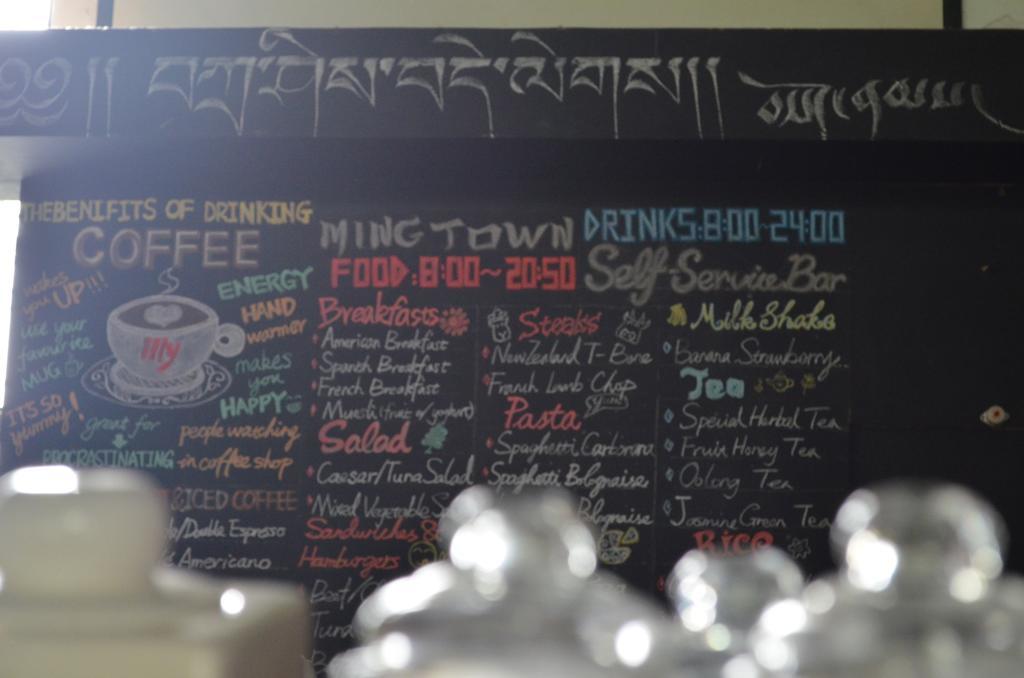 ༄༅།། བཀྲ་ཤིས་བདེ་ལེགས།།།
THE BENIFITS OF DRINKING
COFFEE
makes you UP!!!
ENERGY
HAND warmer
use your favourite MUG
illy
makes you HAPPY
IT'S SO yummy!
great for
PROCRASTINATING
people watching
in coffee shop
ICED COFFEE
Double Espresso
Americano
MING TOWN
FOOD:8:00~20:50
Breakfasts
American Breakfast
Spansh Breakfast
French Breakfast
Muesli (fruit or yoghurt)
Salad
Caesar/Tuna Salad
Mixed Vegetable
Sandwiches &
Hamburgers
Beef/
Tuna
Steaks
New Zealand T-Bone
French Lamb Chop
yum
Pasta
Spaghetti Carbonara
Spaghetti Bolognaise
Bolgnaise
DRINKS:8:00-24:00
Self-Service Bar
Milk Shake
Banana Strawborry..
Tea
Special Herbel Tea
Fruit Honey Tea
Oolong Tea
Jasmine Green Tea
Rice